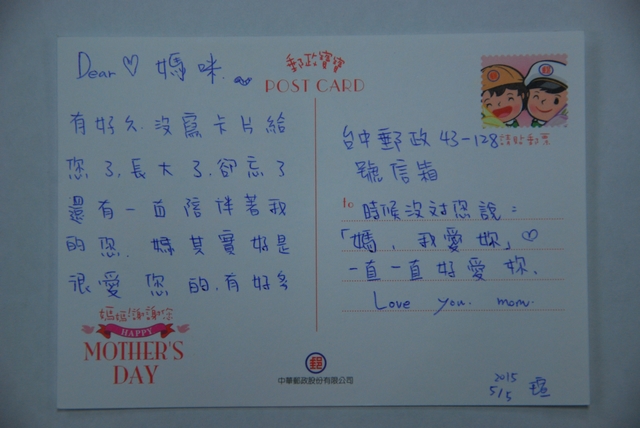 Dear ♡ 媽咪
郵政寶寶
POST CARD
有好久沒寫卡片給
您了,長大了,卻忘了
還有一直陪伴著我
的您. 媽其實好是
很愛您的.有好多
媽媽!謝謝您
HAPPY
MOTHER'S
DAY
台中郵政43-128
請貼郵票
號信箱
to
時候沒對您說:
「媽,我愛妳」♡
一直一直好愛妳、
Love you. mom.
郵
中華郵政股份有限公司
2015
5/5 瑄